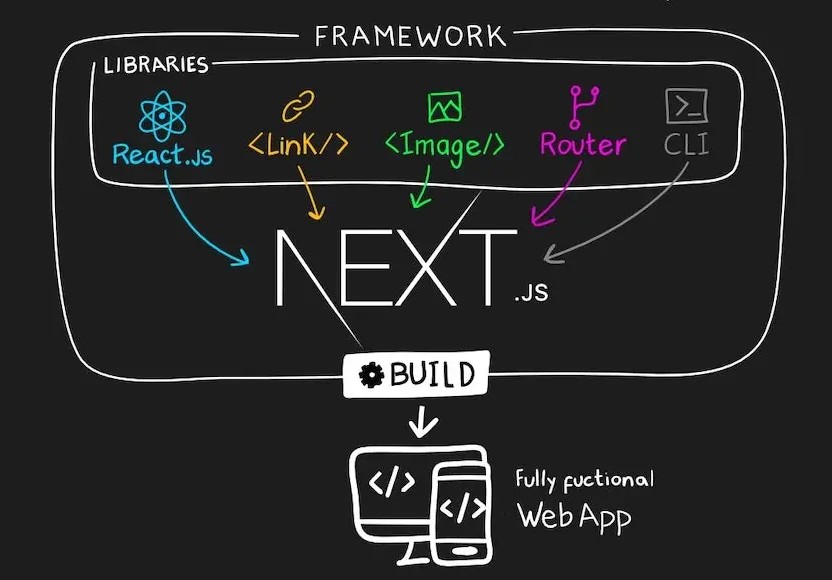 FRAMEWORK
LIBRARIES
React.js
<Link/>
<Image/>
Router
CLI
NEXT.JS
BUILD
</>
</>
Fully fuctional
Web App